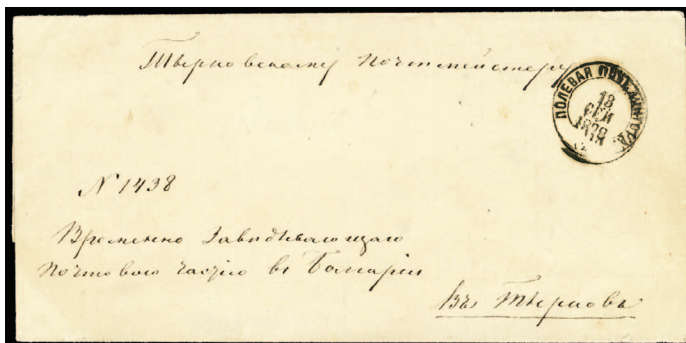 Тырновскому Почтмейстеру
ПОЛЕВАЯ ПОЧТ. КОНТОРА
13
СЕН
1878
N 1438
Временно Завѣдывающаго
Почтовою частію въ Болгаріи
Въ Тырновъ